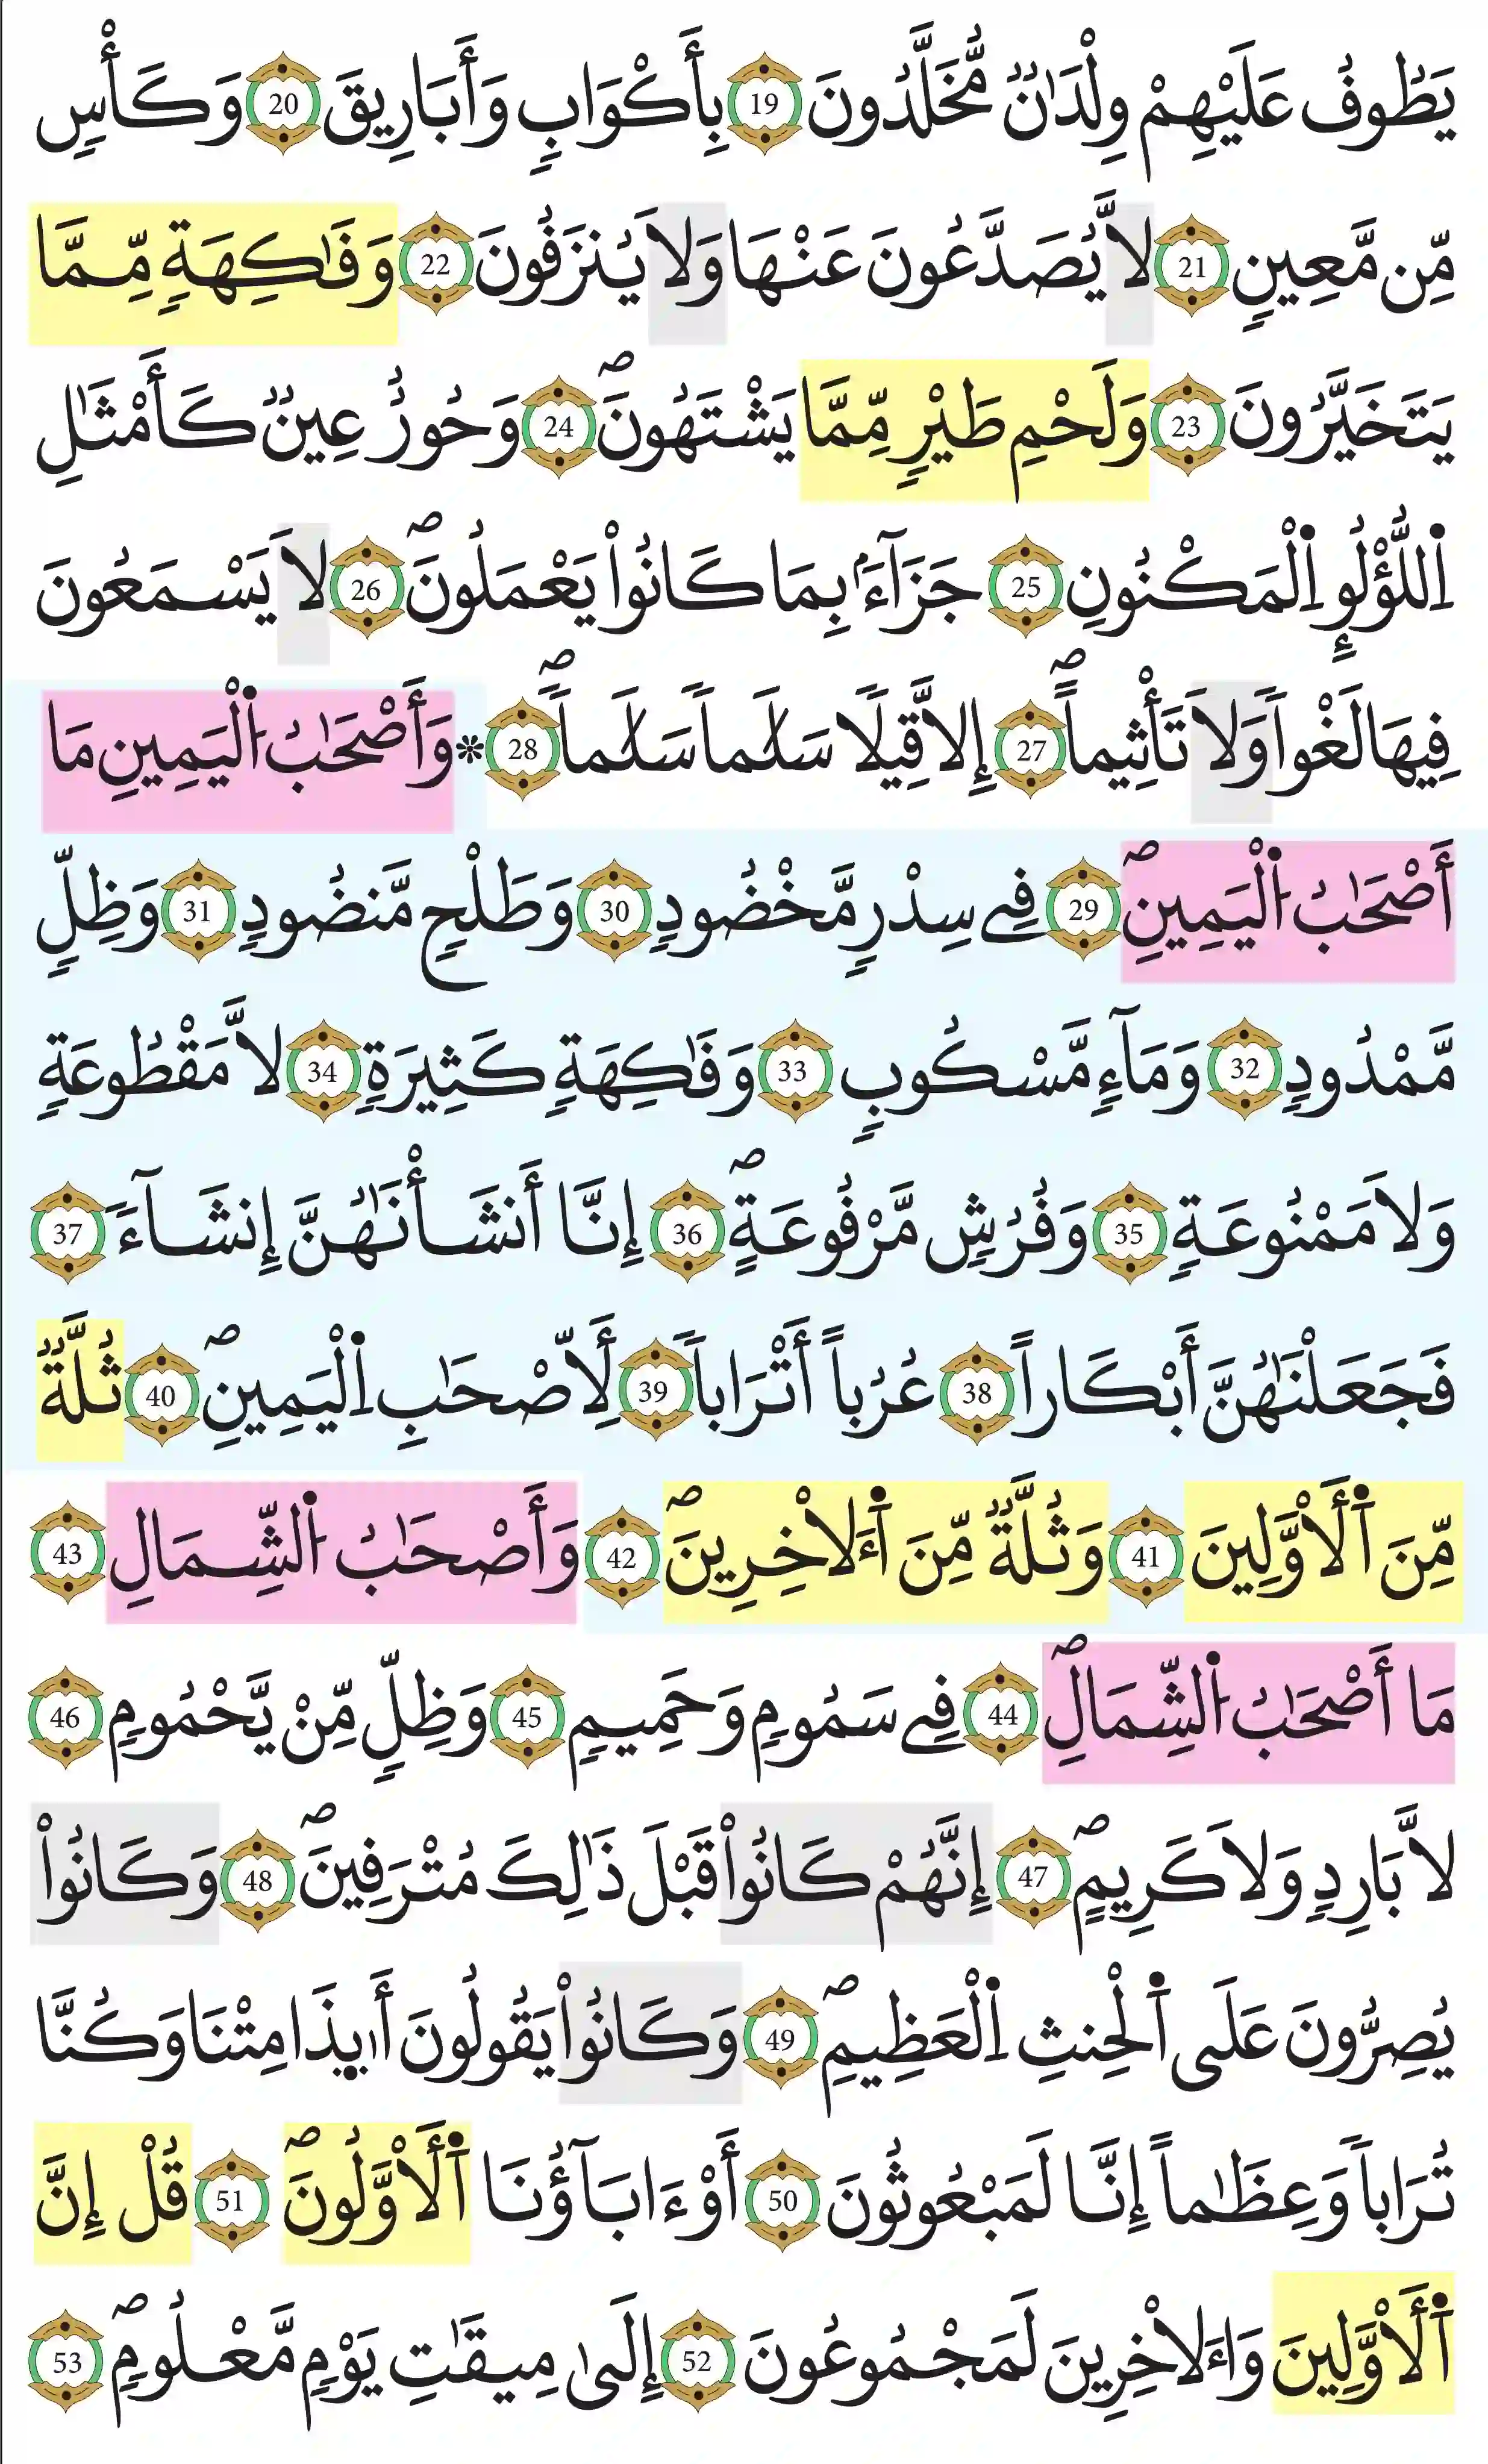 يَطُوفُ عَلَيْهِمْ وِلْدَٰنٌ مُّخَلَّدُونَ 19 بِأَكْوَابٍ وَأَبَارِيقَ 20 وَكَأْسٍ
مِّن مَّعِينٍ 21 لَّا يُصَدَّعُونَ عَنْهَا وَلَا يُنزَفُونَ 22 وَفَٰكِهَةٍ مِّمَّا
يَتَخَيَّرُونَ 23 وَلَحْمِ طَيْرٍ مِّمَّا يَشْتَهُونَۖ 24 وَحُورٌ عِينٌ كَأَمْثَٰلِ
اِ۬للُّؤْلُوِٕ اِ۬لْمَكْنُونِ 25 جَزَآءَۢ بِمَا كَانُواْ يَعْمَلُونَۖ 26 لَا يَسْمَعُونَ
فِيهَا لَغْواٗ وَلَا تَأْثِيماًۖ 27 إِلَّا قِيلٗا سَلَٰماٗ سَلَٰماٗۖ 28 ۞وَأَصْحَٰبُ اُ۬لْيَمِينِ مَا
أَصْحَٰبُ اُ۬لْيَمِينِۖ 29 فِے سِدْرٍ مَّخْضُودٍ 30 وَطَلْحٍ مَّنضُودٍ 31 وَظِلٍّ
مَّمْدُودٍ 32 وَمَآءٍ مَّسْكُوبٍ 33 وَفَٰكِهَةٍ كَثِيرَةٍ 34 لَّا مَقْطُوعَةٍ
وَلَا مَمْنُوعَةٍ 35 وَفُرُشٍ مَّرْفُوعَةٍۖ 36 إِنَّا أَنشَأْنَٰهُنَّ إِنشَآءٗ 37
فَجَعَلْنَٰهُنَّ أَبْكَاراً 38 عُرُباً أَتْرَاباٗ 39 لِّأَصْحَٰبِ اِ۬لْيَمِينِۖ 40 ثُلَّةٌ
مِّنَ اَ۬لْأَوَّلِينَ 41 وَثُلَّةٌ مِّنَ اَ۬لْأٓخِرِينَۖ 42 وَأَصْحَٰبُ اُ۬لشِّمَالِ 43
مَا أَصْحَٰبُ اُ۬لشِّمَالِۖ 44 فِے سَمُومٍ وَحَمِيمٍ 45 وَظِلٍّ مِّنْ يَّحْمُومٍ 46
لَّا بَارِدٍ وَلَا كَرِيمٍۖ 47 إِنَّهُمْ كَانُواْ قَبْلَ ذَٰلِكَ مُتْرَفِينَۖ 48 وَكَانُواْ
يُصِرُّونَ عَلَى اَ۬لْحِنثِ اِ۬لْعَظِيمِۖ 49 وَكَانُواْ يَقُولُونَ أَى۪ذَا مِتْنَا وَكُنَّا
تُرَاباٗ وَعِظَٰماً إِنَّا لَمَبْعُوثُونَ 50 أَوْ ءَابَآؤُنَا اَ۬لْأَوَّلُونَۖ 51 قُلْ إِنَّ
اَ۬لْأَوَّلِينَ وَالْأٓخِرِينَ لَمَجْمُوعُونَ 52 إِلَىٰ مِيقَٰتِ يَوْمٍ مَّعْلُومٍۖ 53